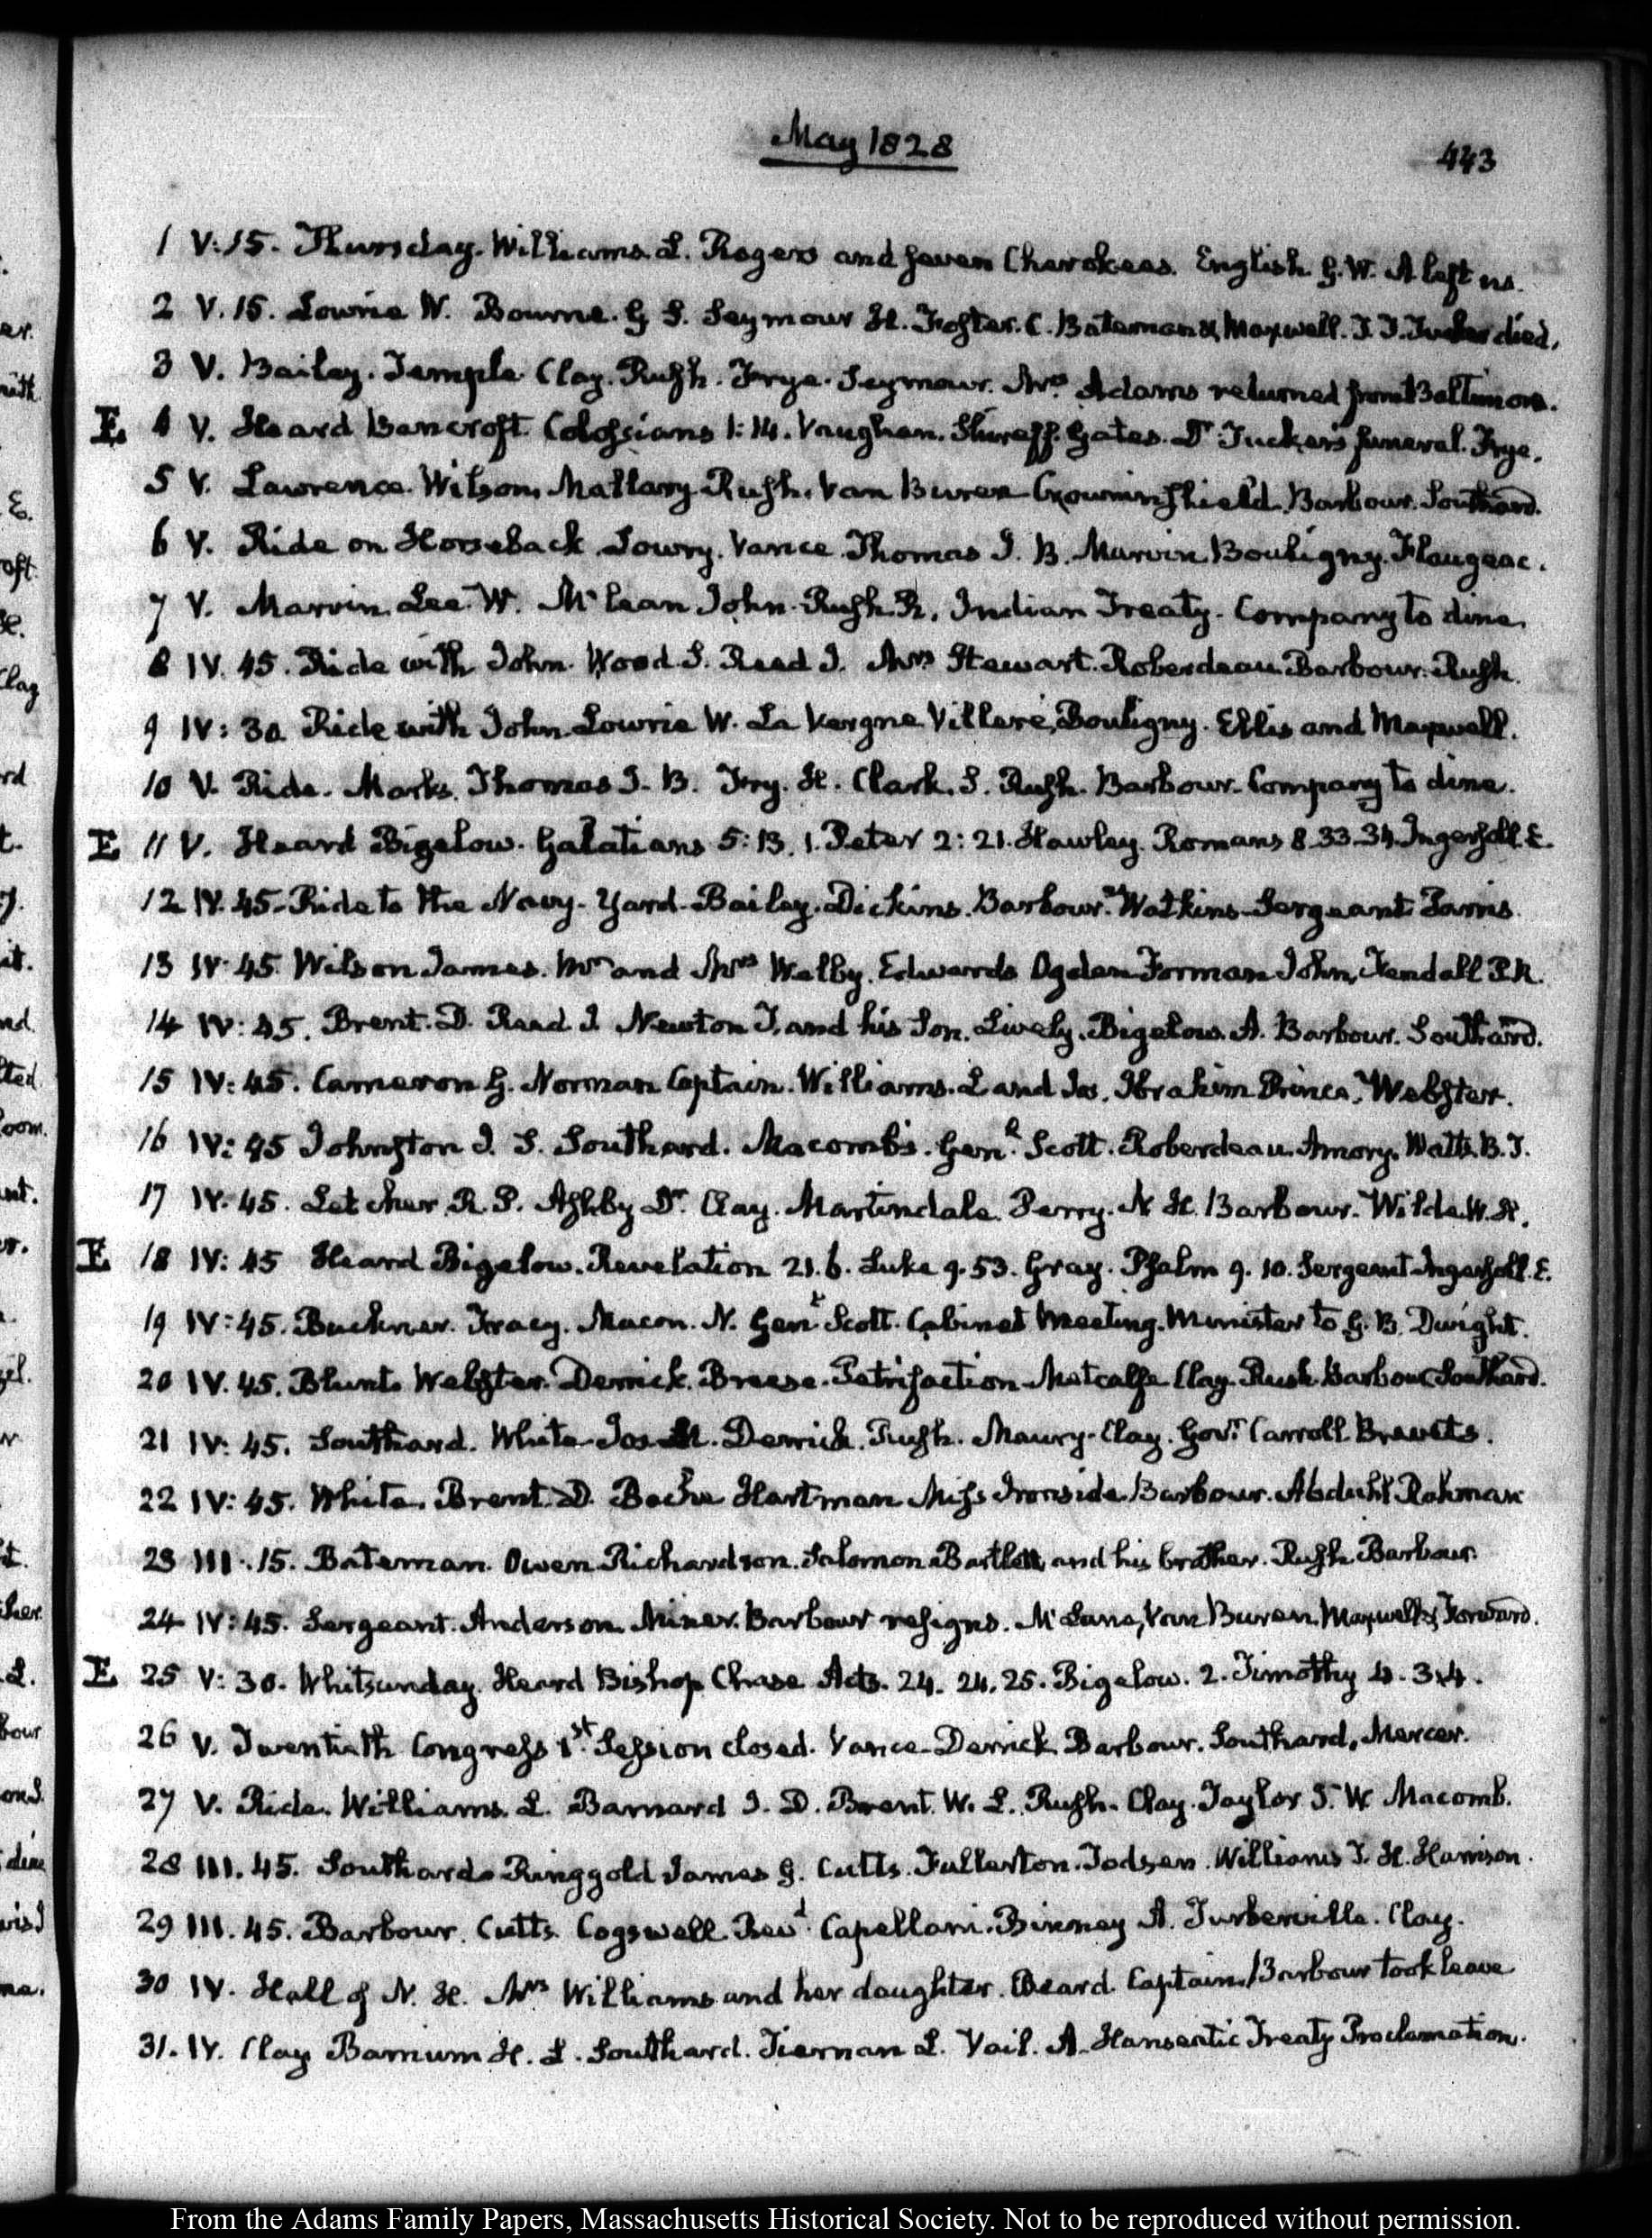 May 1828
443
1 V:15. Thursday. Williams. L. Rogers and seven Cherokees. English. G. W. A left us.
2 V. 15. Lowrie W. Bourne. G S. Seymour H. Foster. C. Bateman & Maxwell. T. T. Tucker died.
3 V. Bailey. Temple. Clay. Rush. Frye. Seymour. Mrs. Adams returned from Baltimore.
E. 4 V. Heard Bancroft. Colossians 1:14. Vaughan. Shireff. Gates. Dr Tucker's funeral. Frye.
5 V. Lawrence. Wilson. Mallary. Rush. Van Buren Crowninshield. Barbour. Southard.
6 V. Ride on Horseback. Lowry. Vance. Thomas J. B. Marvin Bouligny. Flaugeac.
7 V. Marvin. Lee. W. McLean John. Rush. R. Indian Treaty. Company to dine.
8 IV. 45. Ride with John. Wood S. Reed J. Mrs Stewart. Roberdeau. Barbour. Rush.
9 IV: 30 Ride with John. Lowrie W. La Vergne Villeré, Bouligny. Ellis and Maxwell.
10 V. Ride. Marks. Thomas J. B. Fry. H. Clark. S. Rush. Barbour. Company to dine.
E 11 V. Heard Bigelow. Galatians 5:13. 1. Peter 2:21. Hawley. Romans 8.33.34. Ingersoll. E.
12 IV. 45. Ride to the Navy-Yard. Bailey. Dickins. Barbour. Watkins. Sergeant. Farris.
13 IV. 45. Wilson James. Mr and Mrs Welby. Edwards Ogden Forman John, Fendall P. R.
14 IV: 45. Brent. D. Read J Newton T. and his Son. Lively. Bigelow. A. Barbour. Southard.
15 IV: 45. Cameron G. Norman Captain. Williams. L and Jos. Ibrahim Prince. Webster.
16 IV: 45 Johnston J. S. Southard. Macomb's. Genl. Scott. Roberdeau. Amory. Watts. B. T.
17 IV. 45. Letcher. R. P. Ashby Dr. Clay. Martindale. Perry. N H. Barbour. Wilde. W. H.
E. 18 IV: 45 Heard Bigelow. Revelation 21. 6. Luke 9. 53. Gray. Psalm 9. 10. Sergeant Ingersoll. E.
19 IV: 45. Buckner. Tracy. Macon. N. Genl Scott. Cabinet Meeting. Minister to G. B. Dwight.
20 IV. 45. Blunt. Webster. Derrick. Breese. Petrifaction. Metcalfe Clay. Rush. Barbour. Southard.
21 IV: 45. Southard. White Jos. M. Derrick. Rush. Maury. Clay. Govr. Carroll Brevets.
22 IV: 45. White. Brent. D. Bache Hartman Miss Ironside. Barbour. Abduhl Rahman
23 III. 15. Bateman. Owen Richardson. Salomon Bartlett and his brother. Rush. Barbour.
24 IV: 45. Sergeant. Anderson. Miner. Barbour resigns. McLane, Van Buren. Maxwell & Forward.
E. 25 V: 30. Whitsunday. Heard Bishop Chase Acts. 24. 24. 25. Bigelow. 2. Timothy 4. 3.4.
26 V. Twentieth Congress 1st. Session closed. Vance. Derrick Barbour. Southard, Mercer.
27 V. Ride. Williams. L. Barnard I. D. Brent. W. L. Rush. Clay. Taylor. J. W. Macomb.
28 III. 45. Southard. Ringgold James G. Cutts. Fullerton. Williams T. H. Harrison.
29 III. 45. Barbour. Cutts. Cogswell. Revd. Capellani. Binney A. Turberville. Clay.
30 IV. Hall of N. H. Mrs Williams and her daughter. Beard. Captain. Barbour took leave
31. IV. Clay Barnum H. L. Southard. Tiernan L. Vail. A. Hanseatic Treaty Proclamation.
From the Adams Family Papers, Massachusetts Historical Society. Not to be reproduced without permission.